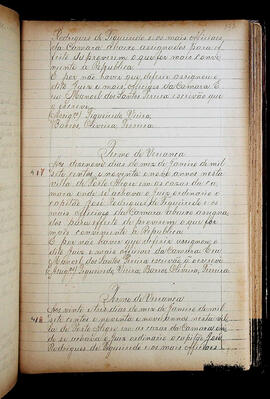 Rodrigues de Figueiredo e os mais officiaes
da Camara abaixo assignados para ef-
feito de proverem o que for mais conve-
niente á Republica.
E por não haver que deferir assignou o
dito Juiz e mais officiaes da Camara. E
eu Manoel dos Santos Ferreira escrivão que o
escrevi.
Figueiredo, Vieira,
Barros, Oliveira, Ferreira
Termo de Vereança
417 Aos dezenove dias do mez de Janeiro de mil
sete centos e noventa e nove annos nesta
villa de Porto Alegre em as cazas da ca-
mara onde se achavam o Juiz ordinario o
capitão José Rodrigues de Figueiredo e os
mais officiaes da Camara abaixo assigna-
dos para effeito de proverem o que for
mais conveniente á Republica
E por não haver que deferir assignou o
dito Juiz e mais officiaes da Camara. E eu
Manoel dos Santos Ferreira escrivão o escrevi
Figueiredo, Vieira, Barros, Oliveira, Ferreira
Termo de Vereança
418 Aos vinte e seis dias do mez de Janeiro de mil
sete centos e noventa e nove annos nesta vil-
la de Porto Alegre em as cazas da Camara on-
de se achava o Juiz ordinario o capitão José
Rodrigues de Figueiredo e os mais officiaes